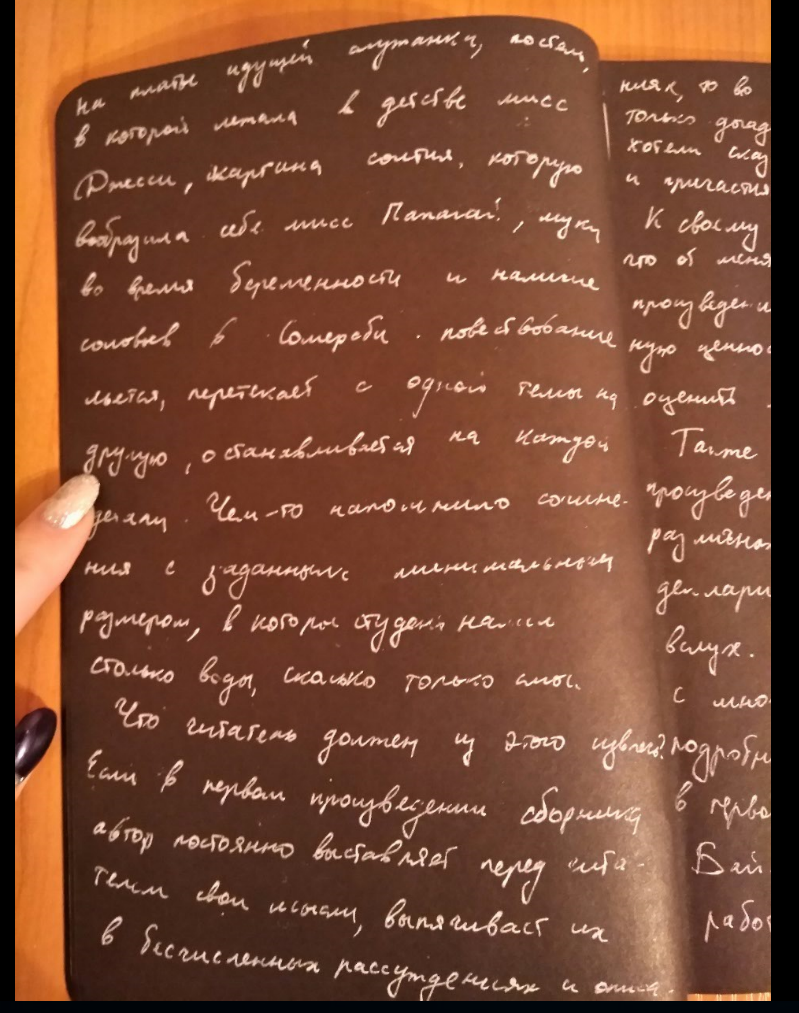 на платье идущей служанки, постель,
в которой лежала в детстве мисс
Джесси, картина соития, которую
вообразила себе мисс Папагай, муки
во время беременности и наличие
соловьев в Сомерсби. повествование
льется, перетекает с одной темы на
другую, останавливается на каждой
детали. Чем-то напомнило сочине-
ния с заданным минимальным
размером, в которое студент налил
столько воды, сколько только смог.
Что читатель должен из этого извлечь?
Если в первом произведении сборника
автор постоянно выставляет перед чита-
телем свои мысли, выпячивает их
в бесчисленных рассуждениях и описа-
ниях, то во
только догад
хотели сказ
и причастия
К своему
что от меня
произведени
ную ценнос
оценить
Также
произведен
различно
деклари
вслух.
с мно
подробн
в перво
Бай
работ